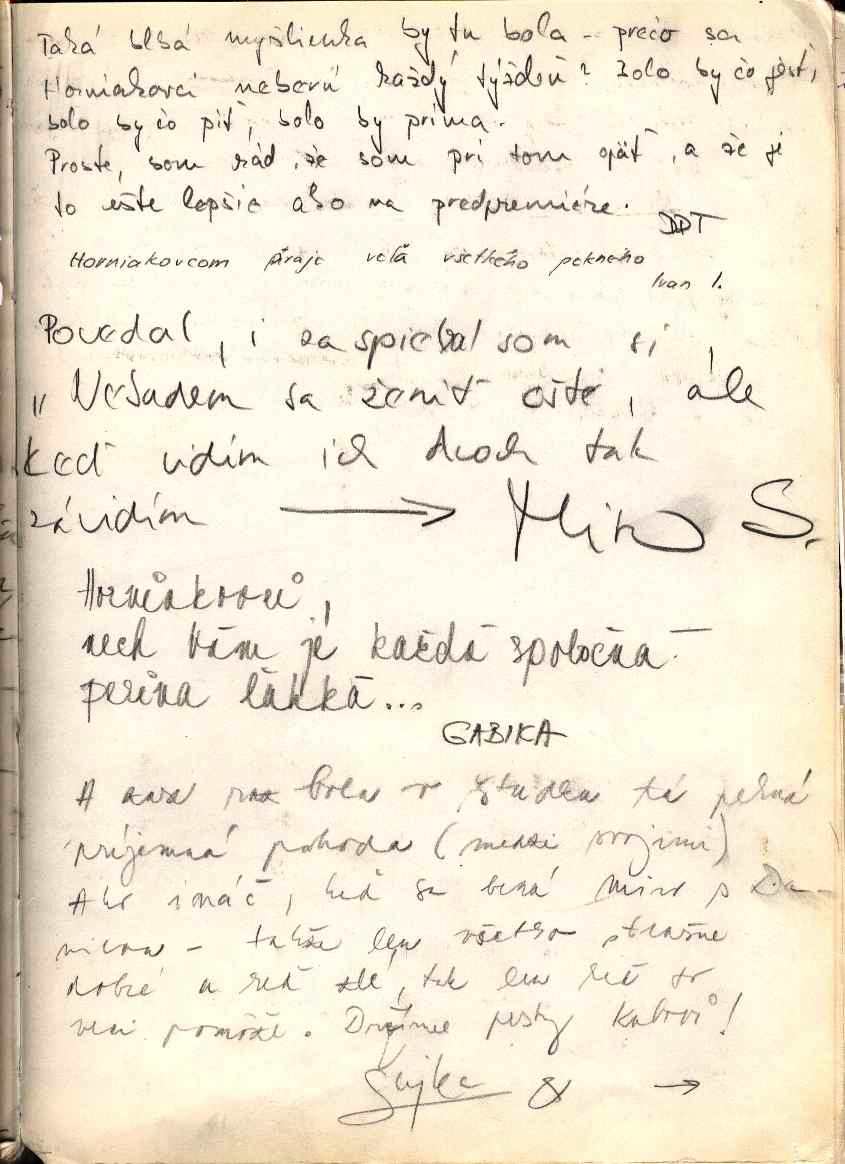 Taká blbá myšlienka by tu bola – prečo sa
Horniakovci neberú každý týždeň? Bolo by čo jesť,
bolo by čo piť, bolo by príma.
Proste, som rád, že som pri tom opäť, a že je
to ešte lepšie ako na predpremiére.
DDT
Horniakovcom praje veľa všetkého pekného
Ivan I.
Povedal, i zaspieval som si,
"Nebudem sa ženiť ešte, ale
keď vidím ich dvoch tak
závidím → Miro S.
Horniakovci,
nech Vám je každá spoločná
perina ľahká...
GABIKA
A zas raz bola v štúdiu tá pekná
príjemná pohoda (medzi svojimi)
Ako ináč, keď sa berú Miro s Da-
nicou – takže len všetko strašne
dobré a keď zlé, tak len keď to
veci pomôže. Držíme pesty
& →